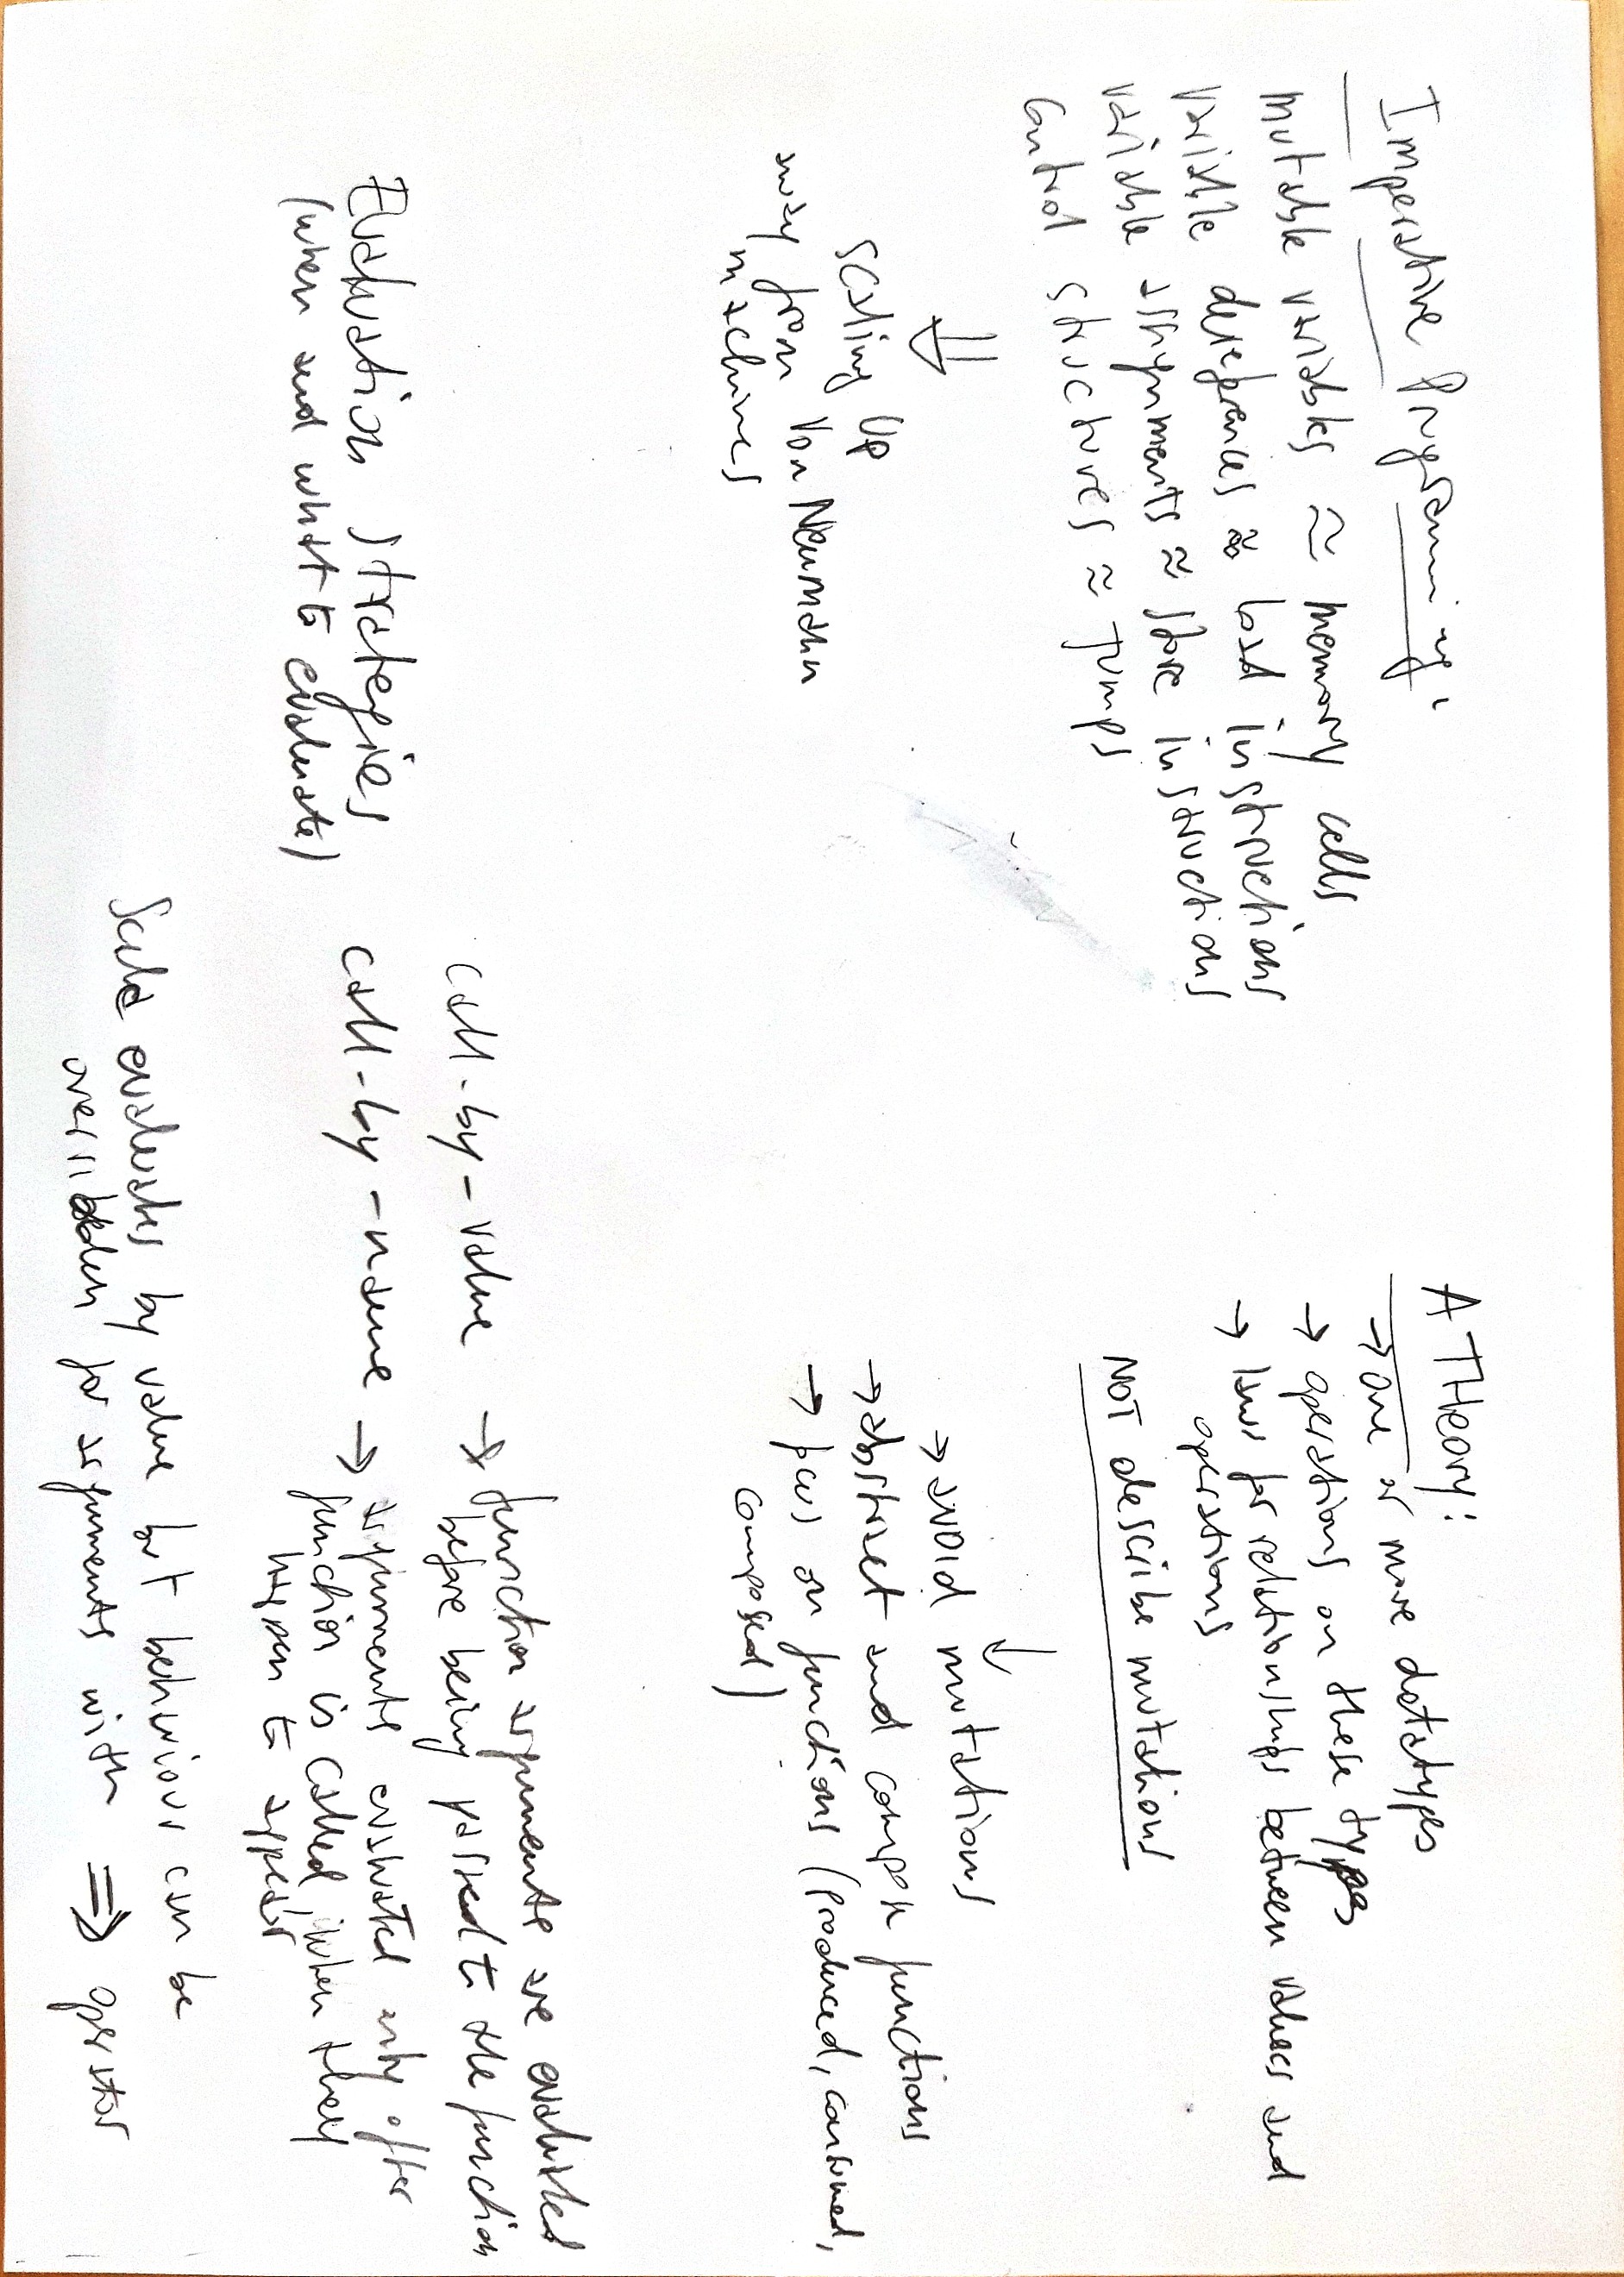 Imperative Programming:
mutable variables ≈ memory cells
variable dereferences ≈ load instructions
variable assignments ≈ store instructions
Control structures ≈ jumps
⇓
scaling up
away from Von Neumann
machines
A THeory:
→ one or more datatypes
→ operations on these types
→ laws for relationships between values and
operations
NOT describe mutations
↓
→ avoid mutations
→ abstract and compose functions
→ focus on functions (produced, consumed,
composed)
Evaluation strategies
(when and what to evaluate)
call-by-value → function arguments are evaluated
before being passed to the function
call-by-name → arguments evaluated only after
function is called, when they
happen to appear
Scala evaluates by value but behaviour can be
overridden for arguments with ⇒ operator